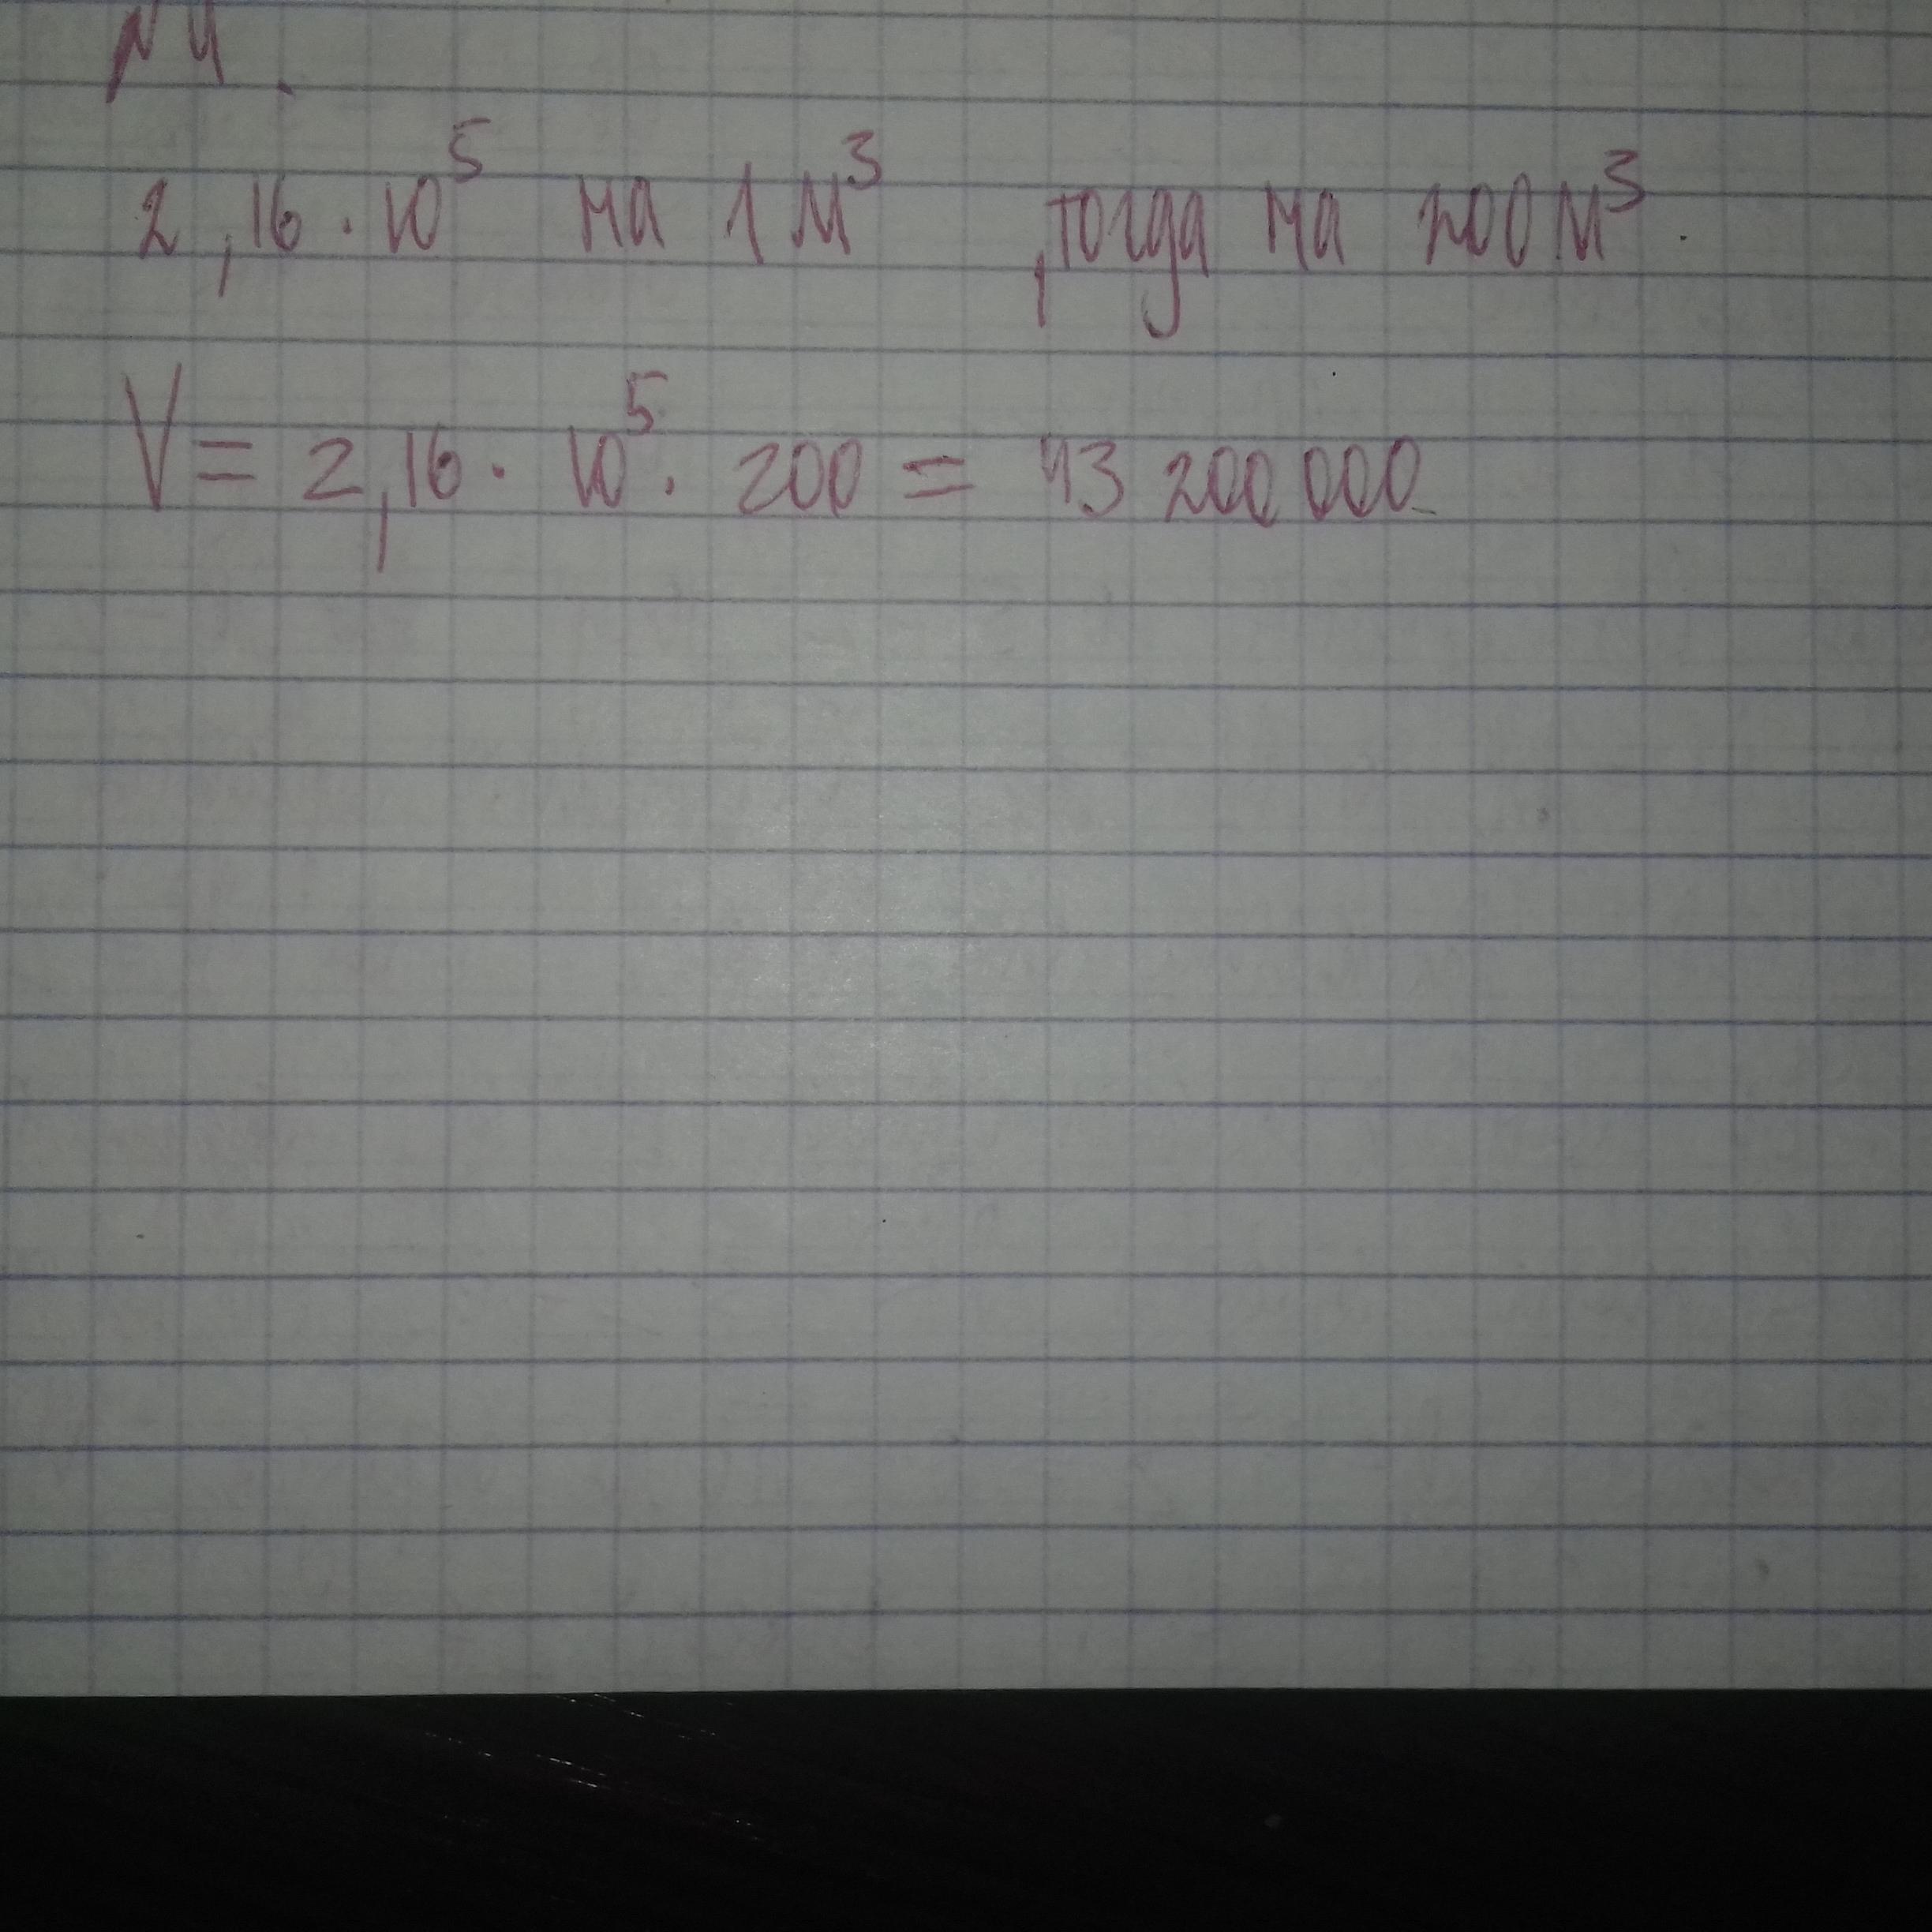 №4.
2,16 · 10⁵ на 1 м³ , тогда на 200 м³.
V = 2,16 · 10⁵ · 200 = 43 200 000